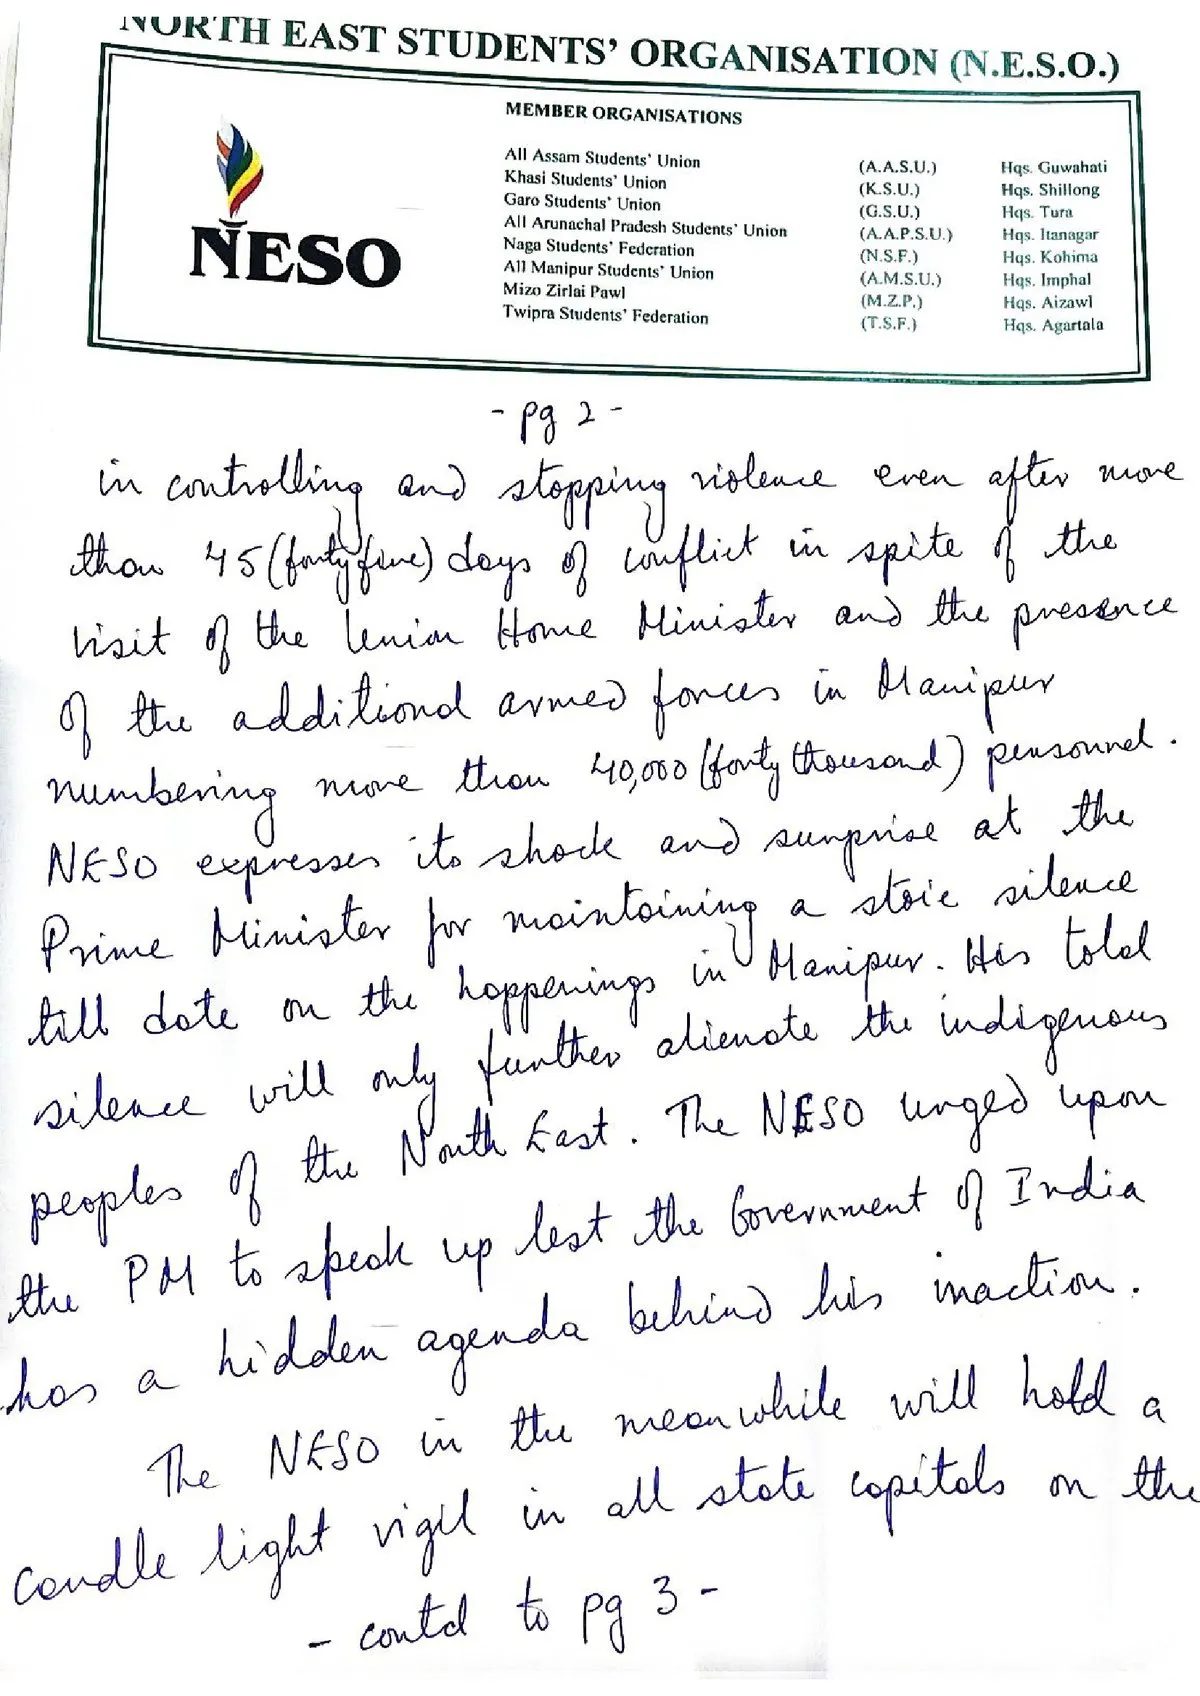 NORTH EAST STUDENTS' ORGANISATION (N.E.S.O.)
NESO
MEMBER ORGANISATIONS
All Assam Students' Union (A.A.S.U.) Hqs. Guwahati
Khasi Students' Union (K.S.U.) Hqs. Shillong
Garo Students' Union (G.S.U.) Hqs. Tura
All Arunachal Pradesh Students' Union (A.A.P.S.U.) Hqs. Itanagar
Naga Students' Federation (N.S.F.) Hqs. Kohima
All Manipur Students' Union (A.M.S.U.) Hqs. Imphal
Mizo Zirlai Pawl (M.Z.P.) Hqs. Aizawl
Twipra Students' Federation (T.S.F.) Hqs. Agartala
- pg 2 -
in controlling and stopping violence even after more
than 45 (forty five) days of conflict in spite of the
visit of the Union Home Minister and the presence
of the additional armed forces in Manipur
numbering more than 40,000 (forty thousand) personnel.
NESO expresses its shock and surprise at the
Prime Minister for maintaining a stoic silence
till date on the happenings in Manipur. His total
silence will only further alienate the indigenous
peoples of the North East. The NESO urged upon
the PM to speak up lest the Government of India
has a hidden agenda behind his inaction.
The NESO in the meanwhile will hold a
candle light vigil in all state capitals on the
- contd to pg 3 -